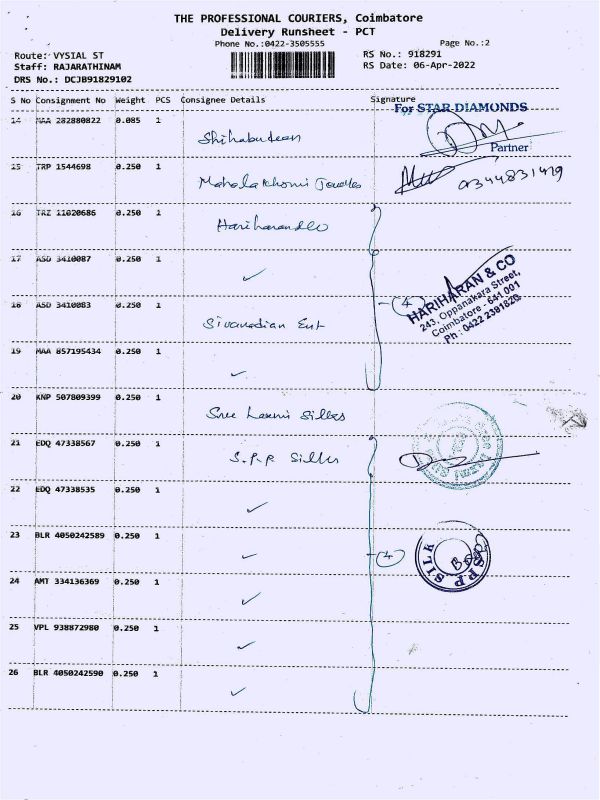 THE PROFESSIONAL COURIERS, Coimbatore
Delivery Runsheet - PCT
Phone No.:0422-3505555
Page No.:2
Route: VYSIAL ST
RS No.: 918291
Staff: RAJARATHINAM
RS Date: 06-Apr-2022
DRS No.: DCJB91829102
S No Consignment No Weight PCS Consignee Details Signature
For STAR DIAMONDS
14 MAA 282880822 0.085 1
Shihabudeen
Partner
15 TRP 1544698 0.250 1
9344831479
16 TRZ 11020686 0.250 1
17 ASD 3410087 0.250 1
✓
HARIHARAN & CO
243, Oppanakara Street,
Coimbatore - 641 001
Ph : 0422 2391820
18 ASD 3410083 0.250 1
4
Ent
19 MAA 857195434 0.250 1
✓
20 KNP 507809399 0.250 1
Sree Laxmi Silks
21 EDQ 47338567 0.250 1
S.P.P Silks
22 EDQ 47338535 0.250 1
✓
23 BLR 4050242589 0.250 1
✓
4
S.P.P SILK
24 AMT 334136369 0.250 1
✓
25 VPL 938872980 0.250 1
✓
26 BLR 4050242590 0.250 1
✓